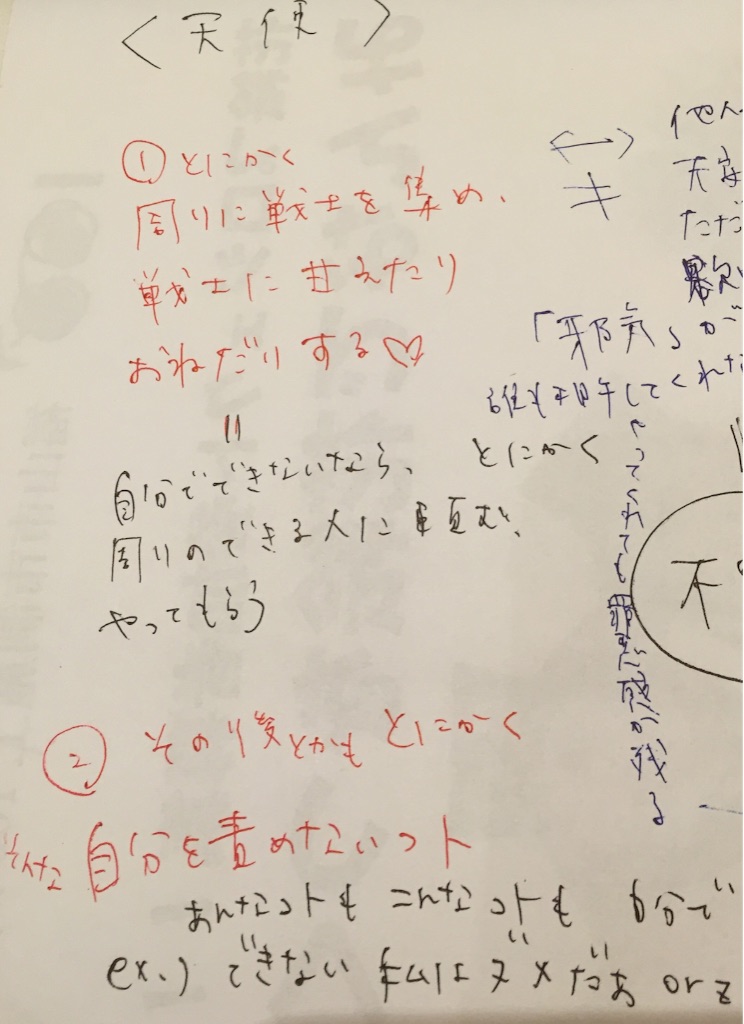 〈天使〉
① とにかく
周りに戦士を集め、
戦士に甘えたり
おねだりする♡
=
自分でできないなら、とにかく
周りのできる人に頼む、
やってもらう
↔
他人
天使
ただ
「邪気」が
誰も理解してくれな
やってくれても罪悪感が残る
天
② その後とかもとにかく
そんな自分を責めないコト
あんなコトもこんなコトも自分で
ex.) できない私はダメだぁ orz